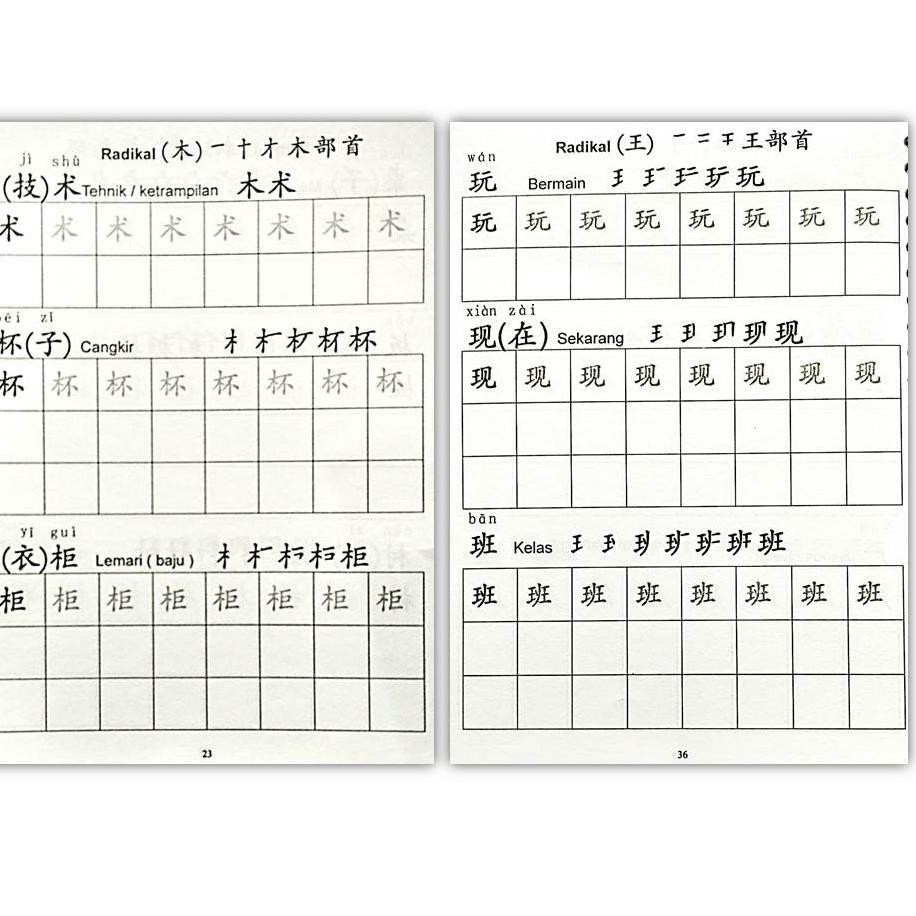 Radikal (木) 一 十 才 木 部首
jì shù
(技)术 Tehnik / ketrampilan 木术
术 术 术 术 术 术 术 术
zǐ
杯(子) Cangkir 杯
杯 杯 杯 杯 杯 杯 杯 杯
yī guì
(衣)柜 Lemari ( baju ) 柜
柜 柜 柜 柜 柜 柜 柜 柜
23
Radikal (王) 一 二 干 王 部首
wán
玩 Bermain 玩
玩 玩 玩 玩 玩 玩 玩 玩
xiàn zài
现(在) Sekarang 现
现 现 现 现 现 现 现 现
bān
班 Kelas 班
班 班 班 班 班 班 班 班
36